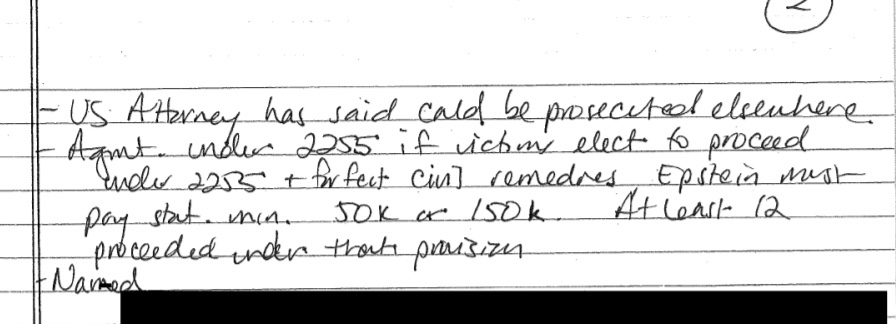 2
- US Attorney has said cald be prosecuted elsewhere.
- Agmt. under 2255 if victims elect to proceed
under 2255 + forfeit civil remedies Epstein must
pay stat. min. 50k or 150k. At least 12
proceeded under that provision
- Named